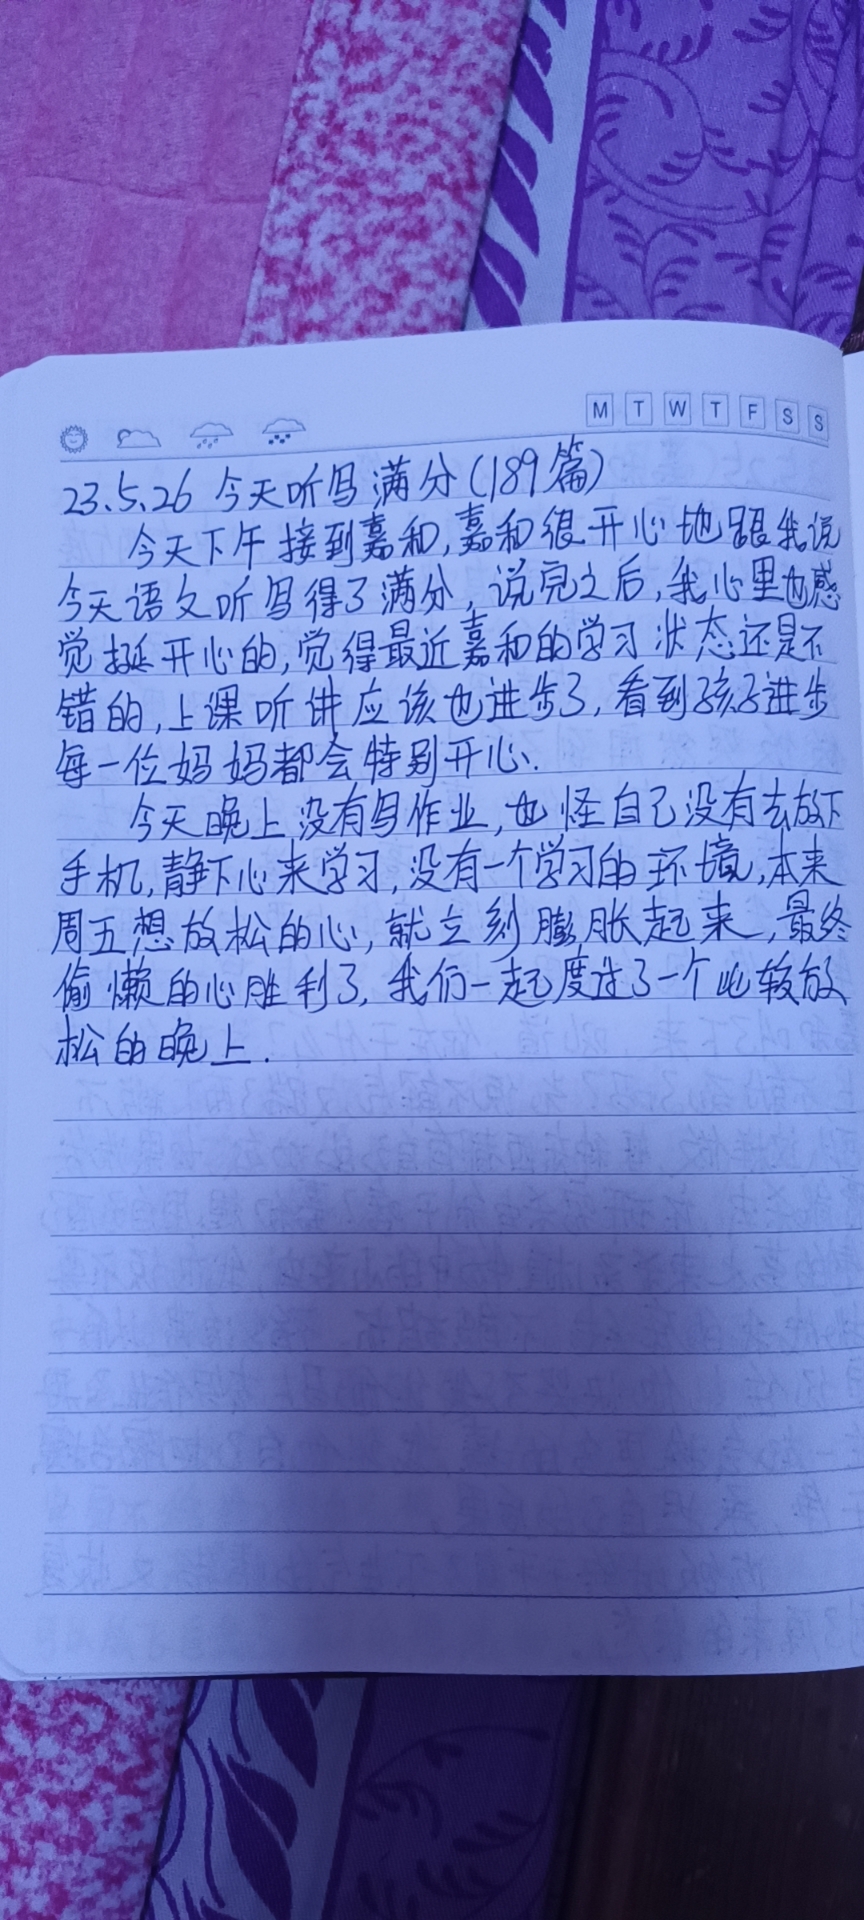 M T W T F S S
23.5.26 今天听写满分(189篇)
今天下午接到嘉和,嘉和很开心地跟我说
今天语文听写得了满分,说完之后,我心里也感
觉挺开心的,觉得最近嘉和的学习状态还是不
错的,上课听讲应该也进步了,看到孩子进步
每一位妈妈都会特别开心.
今天晚上没有写作业,也怪自己没有去放下
手机,静下心来学习,没有一个学习的环境,本来
周五想放松的心,就立刻膨胀起来,最终
偷懒的心胜利了,我们一起度过了一个比较放
松的晚上.